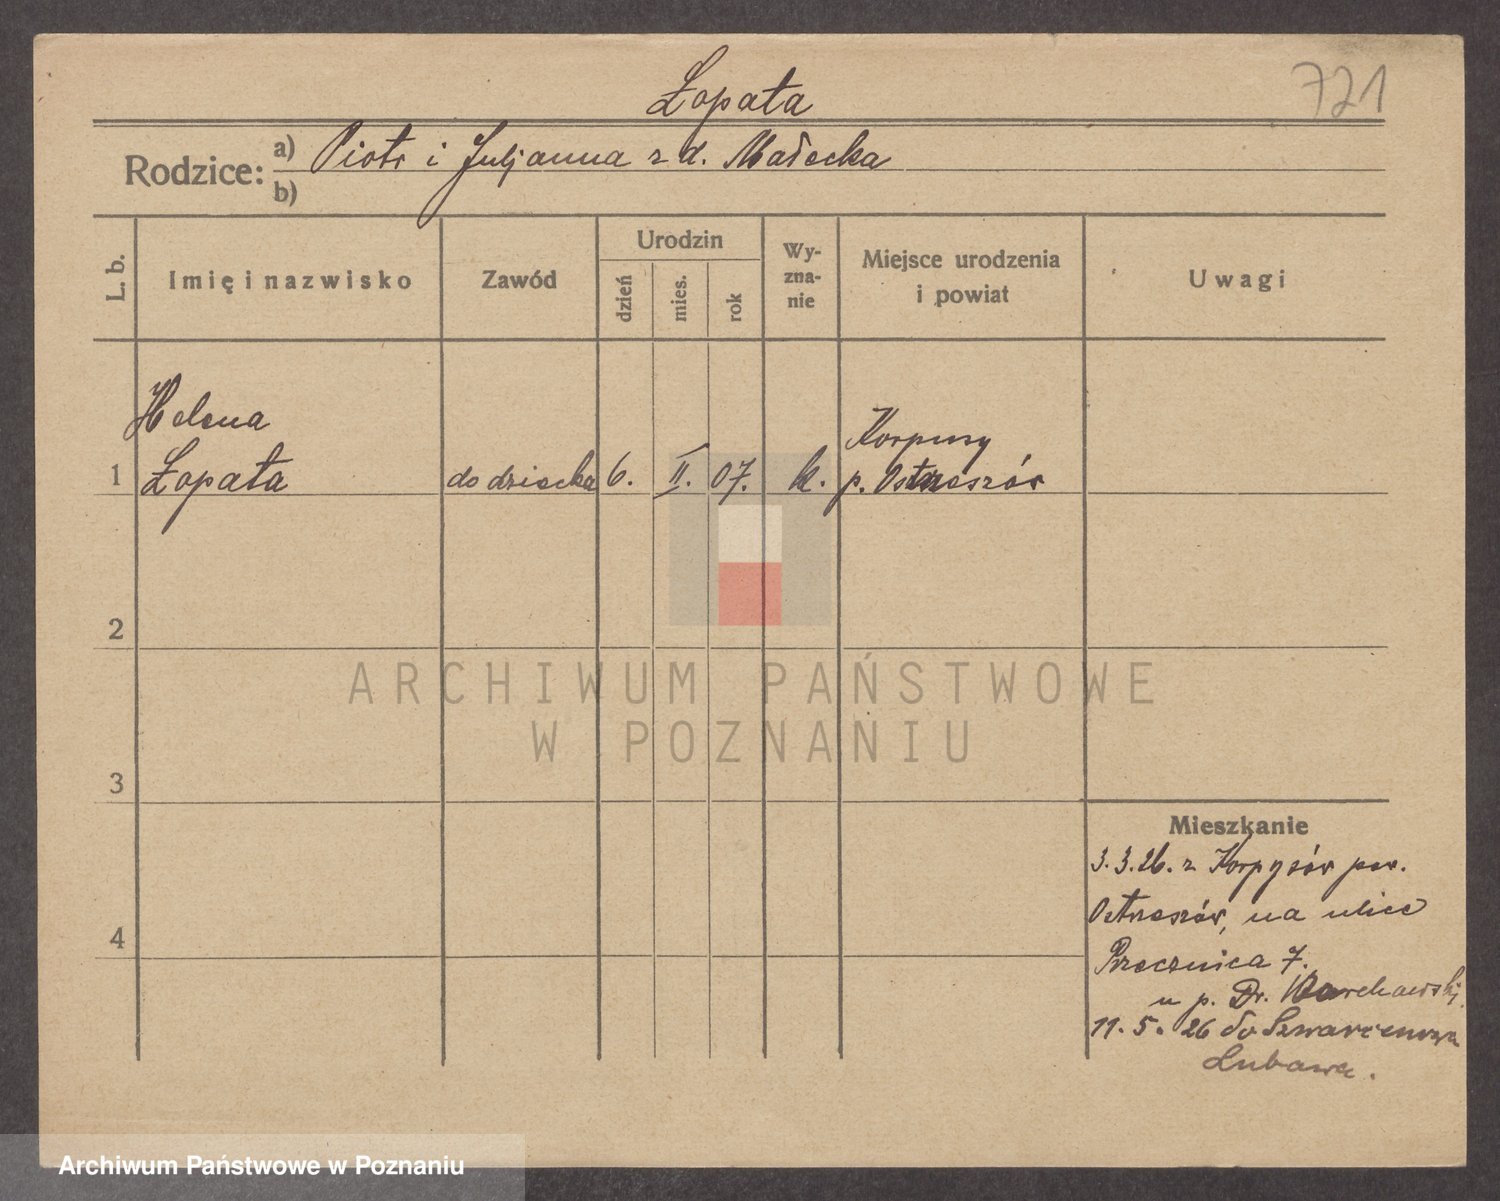 Łopata
721
Rodzice: a) Piotr i Juljanna z d. Małecka
b)
L. b.
Imię i nazwisko
Zawód
Urodzin
dzień
mies.
rok
Wy-
zna-
nie
Miejsce urodzenia
i powiat
Uwagi
Helena
1 Łopata do dziecka 6. II. 07. k.
Korpusy
p. Ostrzeszów
2
3
4
Mieszkanie
3.3.26. z Korpysów pow.
Ostrzeszów, na ulice
Przecznica 7.
u p. Dr.
11. 5. 26 do
Lubawa.
ARCHIWUM PAŃSTWOWE
W POZNANIU
Archiwum Państwowe w Poznaniu